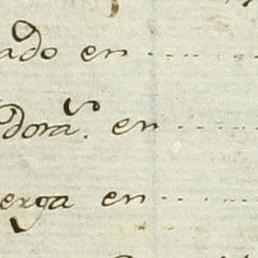 ado en
dorã. en
erga en